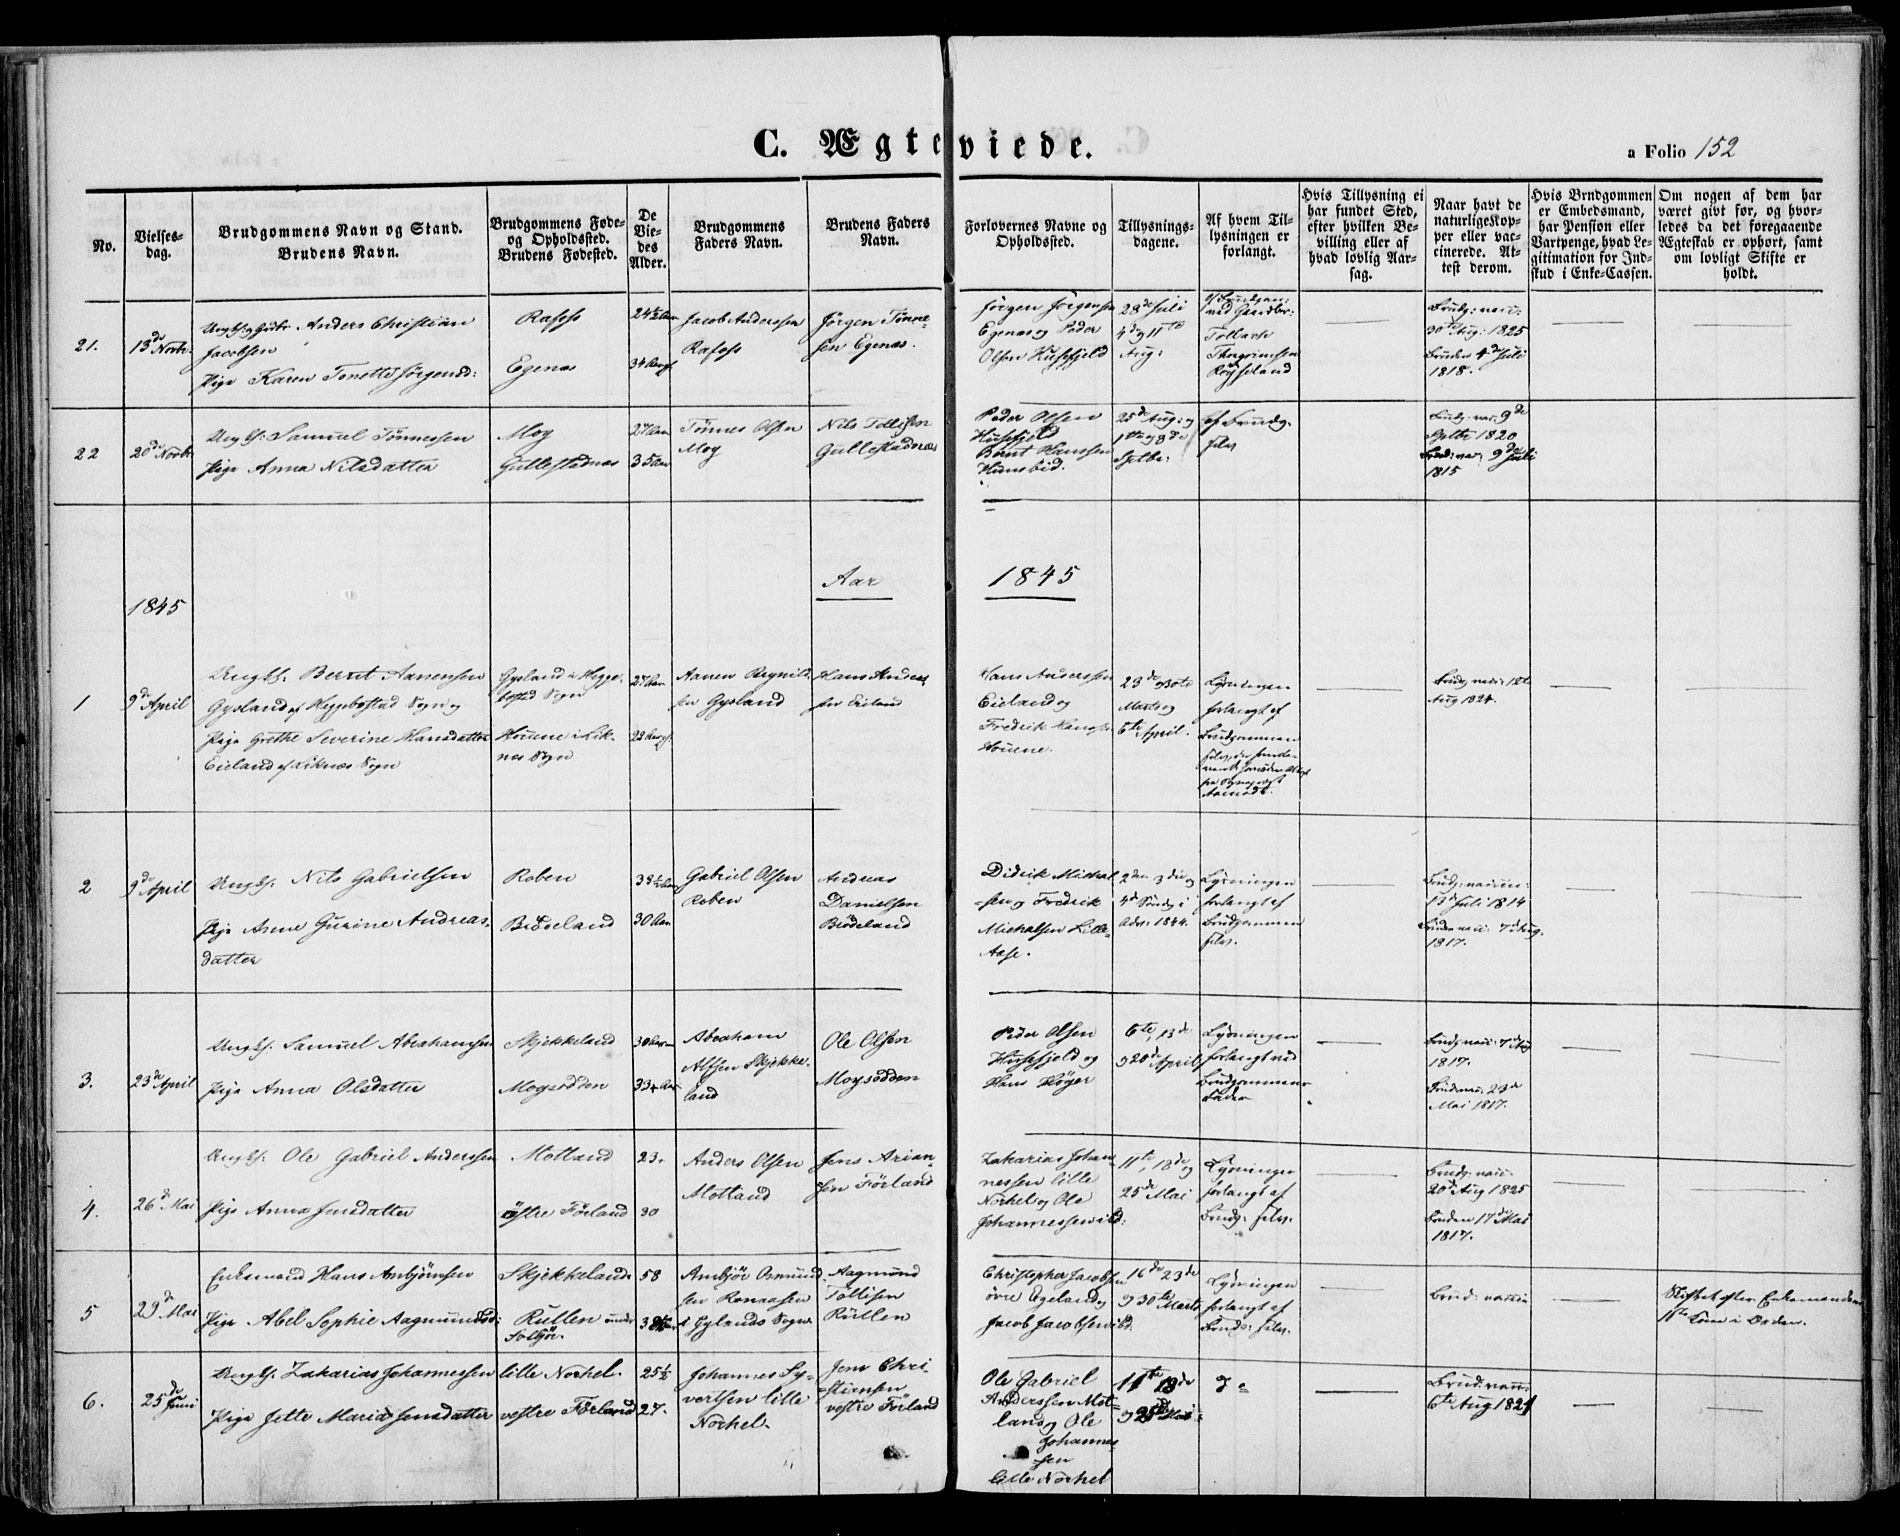 C. Ægteviede.
a Folio 152
No.
Vielses-
dag.
Brudgommens Navn og Stand.
Brudens Navn.
Brudgommens Føde-
og Opholdssted.
Brudens Fødested.
De
Vie-
des
Alder.
Brudgommens
Faders Navn.
Brudens Faders
Navn.
Forlovernes Navne og
Opholdssted.
Tillysnings-
dagene.
Af hvem Til-
lysningen er
forlangt.
Hvis Tillysning ei
har fundet Sted,
efter hvilken Be-
villing eller af
hvad lovlig Aar-
sag.
Naar havt de
naturlige Kop-
per eller vac-
cinerede. At-
test derom.
Hvis Brudgommen
er Embedsmand,
har Pension eller
Vartpenge, hvad Le-
gitimation for Ind-
skud i Enke-Cassen.
Om nogen af dem har
været givt før, og hvor-
ledes da det foregaaende
Ægteskab er ophørt, samt
om lovligt Skifte er
holdt.
21.
13de Novbr.
Anders Christian
Jacobsen
Pige Karen Tonette Jørgensd:
Rafoss
Egenæs
24½ Aar
34 Aar
Jacob Anderssen
Rafoss
Jørgen Tønne-
sen Egenæs.
Jørgen Jørgensen
Egenæs og Peder
Olsen Husefjeld
28de Juli
4de og 11te
Aug:
Tollach
Thorgrimsen
Røyseland
Brudg: vacc:
30te Aug: 1825
Bruden 4de Juli
1818.
22
20de Novbr
Ungk: Samuel Tønnessen
Pige Anna Nilsdatter
Moy
Gullestadnæs
27 Aar
35 Aar
Tønnes Olsen
Moy
Nils Tollisen
Gullestadnæs
Peder Olsen
Husefjeld
Bernt Hanssen
25de Aug: og
1ste og 8de
Septbr:
af Brudg.
selv
Brudg. vac: 9de
Septbr 1820
Brud: vac: 9de Juli
1815
Aar 1845
1845
1
9de April
Ungk: Berent Aanensen
Gysland af Heggebostad Sogn og
Pige Grethe Severine Hansdatter
Eieland af Liknæs Sogn
Gysland i Hegge-
bostad Sogn
Houene i Lik-
næs Sogn
27 Aar
22 Aar
Aanen Reynild-
sen Gysland
Hans Anders-
sen Eieland
Hans Anderssen
Eieland og
Fredrik Hanssen
Houene.
23de og 30te
Marts og
6te April.
Lysningen
forlangt af
Brudgommen
Brudg: vacc: 12te
Aug 1824.
2
9de April
Ungk: Nils Gabrielsen
Pige Anne Gurine Andreas-
datter
Roben
Brødeland
38½ Aar
30 Aar
Gabriel Olsen
Roben
Andreas
Danielsen
Brødeland
Didrik Michal-
sen og Fredrik
Michalsen Lille-
Aase.
2den, 3die og
4de Søndg i
Adv: 1844.
Lysningen
forlangt af
Brudgommen
selv.
Brudg: vacc:
13de Juli 1814
Bruden vacc: 7de Aug.
1817.
3.
23de April
Ungk: Samuel Abrahamsen
Pige Anna Olsdatter
Skjekkeland
Moysodden
30 Aar
33 Aar
Abraham
Alfsen Skjekke-
land
Ole Olsen
Moysodden
Peder Olsen
Husefjeld og
Hans Høyer
6te, 13de
og 20de April
Lysningen
forlangt ved
Brudgommens
Fader
Brudg: vacc: 7de Aug
1817.
Brud vac: 23de
Mai 1817.
4.
26de Mai
Ungk: Ole Gabriel Anderssen
Pige Anna Jensdatter
Motland
østre Førland
23.
30
Anders Olsen
Motland
Jens Arian-
sen Førland
Zakarias Johan-
nessen lille
Norhel og Ole
Johannessen ibd:
11te, 18de og
25de Mai
Lysningen
forlangt af
Brudg: selv.
Brudg: vacc:
20de Aug 1825
Bruden 17de Mai
1817.
5
29de Mai
Enkemand Hans Anbjørnsen
Pige Abel Sophie Aagmundsd:
Skjekkeland.
Rullen under
58
38½ Aar
Anbjør Osmund-
sen
i Gylands Sogn.
Aagmund
Tollisen
Rullen
Christopher Jacobsen
øvre Egeland og
Jacob Jacobsen ibd.
16de 23de
og 30te Marts
Lysningen
forlangt af
Brudg: selv.
Brud: vaccin
Skiftet efter Enkemandens
1ste Kone i Orden.
6.
25de Juni
Ungk: Zakarias Johannessen
Pige Jette Maria Jensdatter
lille Norhel.
vestre Førland
25½
27.
Johannes Sy-
vertsen lille
Norhel.
Jens Chri-
stiansen
vestre Førland
Ole Gabriel
Anderssen Mot-
land og Ole
Johannes-
sen
lille Norhel
11te 18de
og 25de Mai
Brud: vacc:
6te Aug 1821